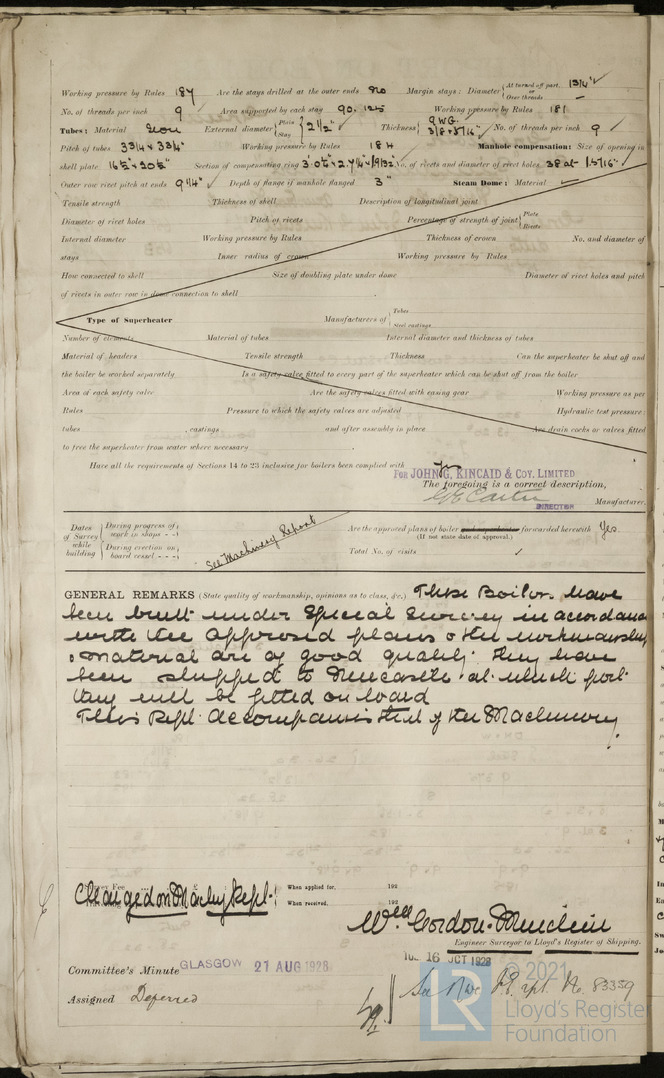 Working pressure by Rules 187 Are the stays drilled at the outer ends no Margin stays: Diameter { At turned off part, 1 3/4" or Over threads —
No. of threads per inch 9 Area supported by each stay 90.125 Working pressure by Rules 181
Tubes: Material Iron External diameter { Plain Stay 2 1/2" Thickness { 9 WG. 3/8 & 5/16" No. of threads per inch 9
Pitch of tubes 3 3/4 x 3 3/4" Working pressure by Rules 184 Manhole compensation: Size of opening in
shell plate 16 1/2" x 20 1/2" Section of compensating ring No. of rivets and diameter of rivet holes 38 at 1 5/16"
Outer row rivet pitch at ends 9 1/4" Depth of flange if manhole flanged 3" Steam Dome: Material —
Tensile strength Thickness of shell Description of longitudinal joint
Diameter of rivet holes Pitch of rivets Percentage of strength of joint { Plate Rivets
Internal diameter Working pressure by Rules Thickness of crown No. and diameter of
stays Inner radius of crown Working pressure by Rules
How connected to shell Size of doubling plate under dome Diameter of rivet holes and pitch
of rivets in outer row in dome connection to shell
Type of Superheater Manufacturers of { Tubes Steel castings
Number of elements Material of tubes Internal diameter and thickness of tubes
Material of headers Tensile strength Thickness Can the superheater be shut off and
the boiler be worked separately Is a safety valve fitted to every part of the superheater which can be shut off from the boiler
Area of each safety valve Are the safety valves fitted with easing gear Working pressure as per
Rules Pressure to which the safety valves are adjusted Hydraulic test pressure:
tubes , castings and after assembly in place Are drain cocks or valves fitted
to free the superheater from water where necessary
Have all the requirements of Sections 14 to 23 inclusive for boilers been complied with
FOR JOHN G. KINCAID & COY. LIMITED
The foregoing is a correct description,
DIRECTOR Manufacturer.
Dates of Survey while building { During progress of work in shops - - During erection on board vessel - - -
See Machinery Report
Are the approved plans of boiler and superheater forwarded herewith Yes.
(If not state date of approval.)
Total No. of visits
GENERAL REMARKS (State quality of workmanship, opinions as to class, &c.) These Boilers have
been built under Special Survey in accordance
with the approved plans & the workmanship
& material are of good quality. They have
been shipped to Newcastle at which port
they will be fitted on board
This Rept. accompanies that of the Machinery.
Survey Fee
Charged on Machy Rept.
When applied for, 192
When received, 192
Wm Gordon
Engineer Surveyor to Lloyd's Register of Shipping.
Committee's Minute GLASGOW 21 AUG 1928
TUE. 16 OCT 1928
Assigned Deferred
See Nwc J.E. rpt. No. 83359
© 2021
LR
Lloyd's Register
Foundation